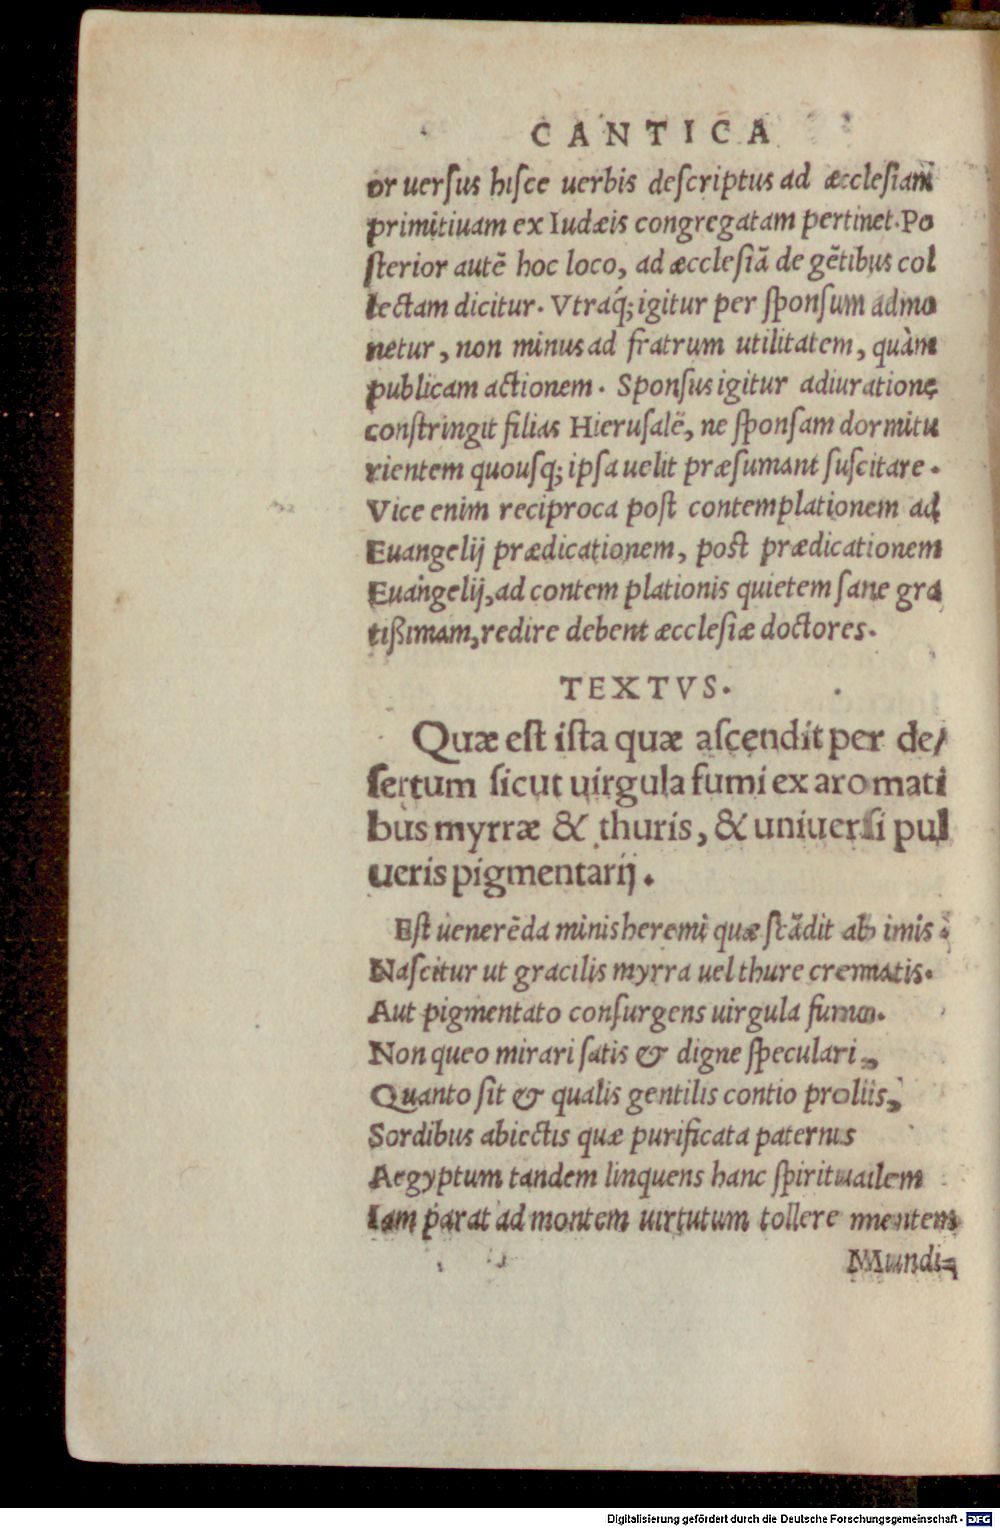 CANTICA
or uersus hisce uerbis descriptus ad æcclesiam
primitiuam ex Iudæis congregatam pertinet. Po
sterior autē hoc loco, ad æcclesiā de gētibus col
lectam dicitur. Vtraq́; igitur per sponsum admo
netur, non minus ad fratrum utilitatem, quàm
publicam actionem. Sponsus igitur adiuratione
constringit filias Hierusalē, ne sponsam dormitu
rientem quousq; ipsa uelit præsumant suscitare.
Vice enim reciproca post contemplationem ad
Euangelij prædicationem, post prædicationem
Euangelij, ad contem plationis quietem sane gra
tißimam, redire debent æcclesiæ doctores.
TEXTVS.
Quæ est ista quæ ascendit per de/
sertum sicut uirgula fumi ex aro mati
bus myrræ & thuris, & uniuersi pul
ueris pigmentarij.
Est uenerēda minis heremi quæ scādit ab imis
Nascitur ut gracilis myrra uel thure crematis.
Aut pigmentato consurgens uirgula fumo.
Non queo mirari satis & digne speculari,
Quanto sit & qualis gentilis contio prolis,
Sordibus abiectis quæ purificata paternis
Aegyptum tandem linquens hanc spiritualem
Iam parat ad montem uirtutum tollere mentem
Mundi=
Digitalisierung gefördert durch die Deutsche Forschungsgemeinschaft - DFG